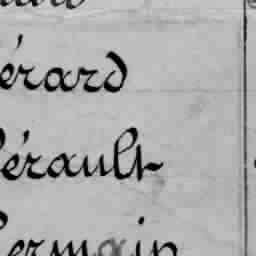 érard
érault
ermain